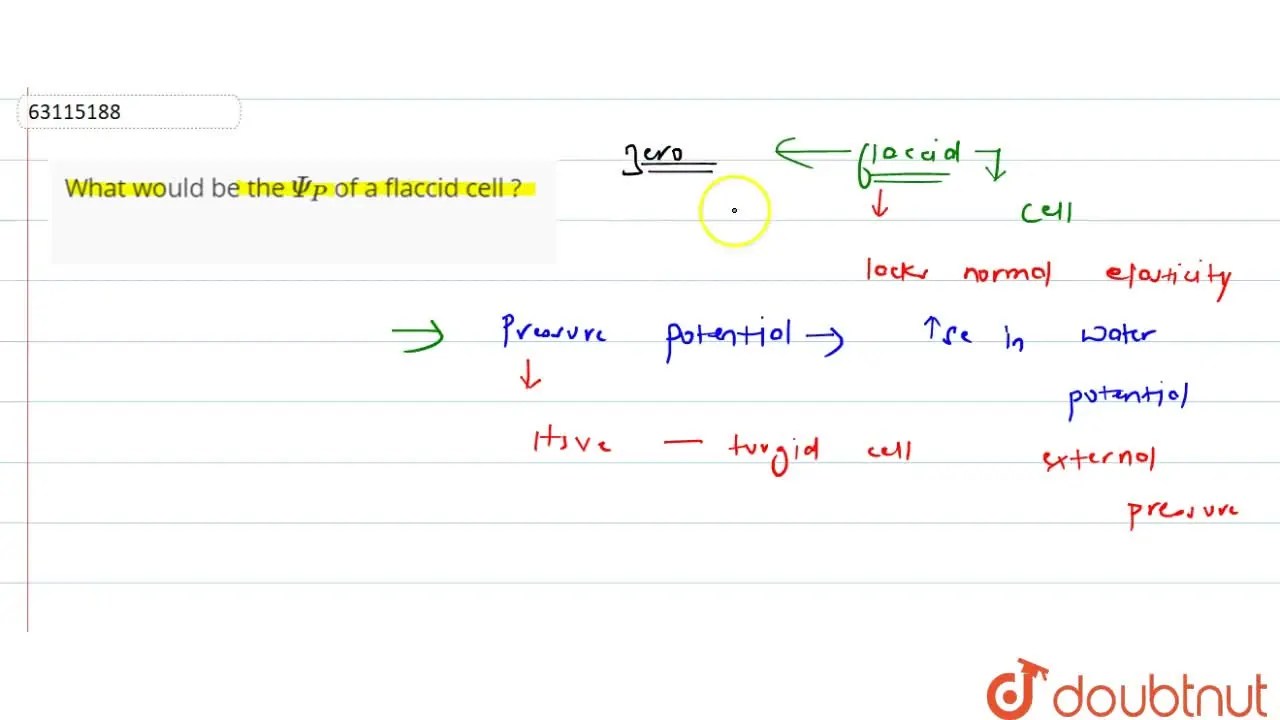 63115188
What would be the Ψ_P of a flaccid cell ?
zero ← flaccid
cell
lacks normal elasticity
→ Pressure potential → ↑se in water
potential
+tive — turgid cell
external
pressure
doubtnut